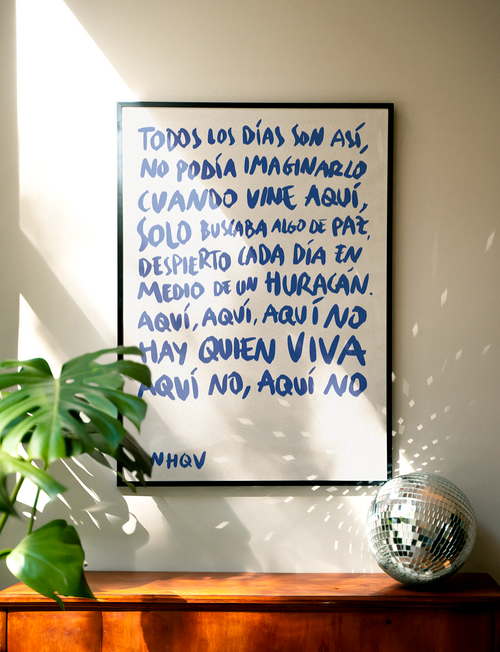 TODOS LOS DÍAS SON ASÍ,
NO PODÍA IMAGINARLO
CUANDO VINE AQUÍ,
SOLO BUSCABA ALGO DE PAZ,
DESPIERTO CADA DÍA EN
MEDIO DE UN HURACÁN.
AQUÍ, AQUÍ, AQUÍ NO
HAY QUIEN VIVA
AQUÍ NO, AQUÍ NO
NHQV